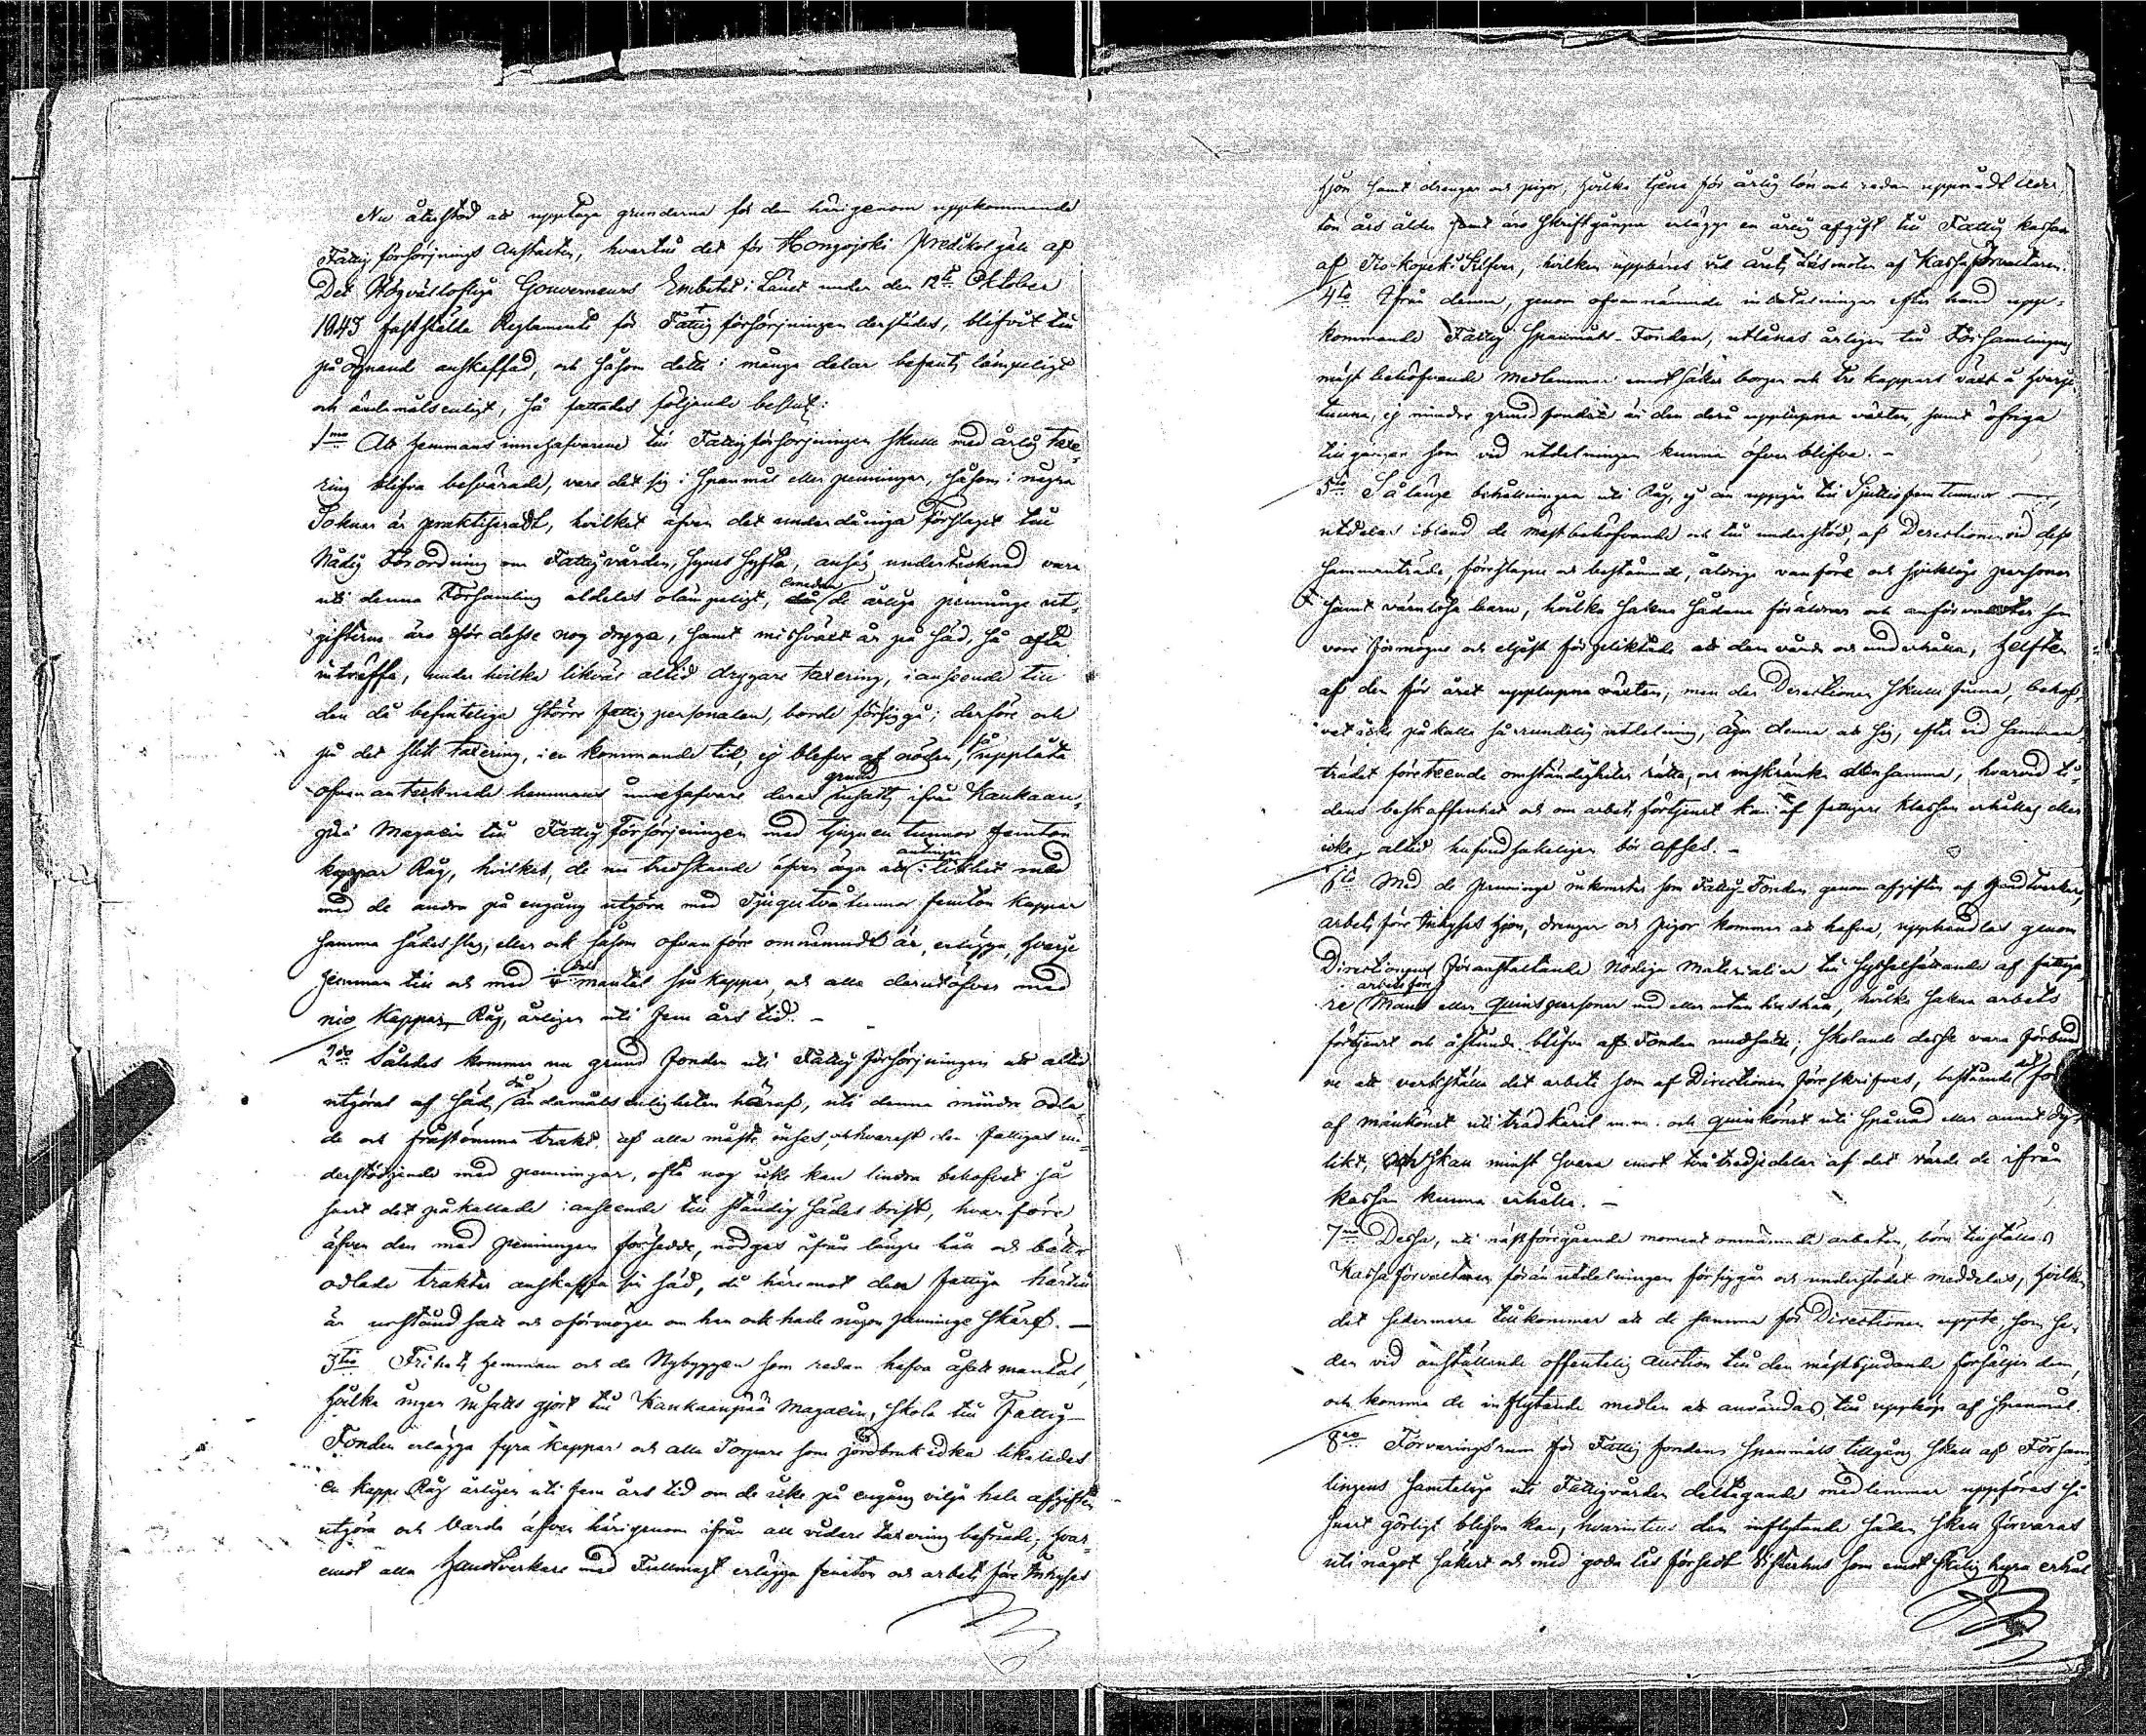 Nu återstod att upptaga grunderna för den härigenom uppkommande
Fattigförsörjnings Anstalten, hvartill det för Hongojoki Predikogäll af
Det Högvällofliga Gouverneurs Embetet i Länet under den 12te Oktober
1843 fastställda Reglemente för Fattigförsörjningen derstädes, blifvit till
påögnand anskaffad, och såsom detta i många delar befants lämpeligt
och ändamålsenligt, så fattades följande beslut:
1mo Att hemmans innehafvarene till Fattigförsörjningen skulle med årlig Taxe-
ring blifva besvärade, vare det sig i Spanmål eller penningar, såsom i några
Soknar är praktiseradt, hvilket äfven det underdåniga Förslaget till
Nådig Förordning om Fattigvården, synes syfta, ansåg undertecknad vara
uti denna Församling aldeles olämpeligt, emedan de årliga penninge ut-
gifterna äro för desse nog dryga, samt missväxt år på säd, så ofta
inträffa, under hvilka likväl altid drygare taxering, i anseende till
den då befinteliga större fattig personalen, borde försiggå; derföre och
på det slik taxering, i en kommande tid, ej blefve af nöden, så uppläto
ofvan antecknade hemmans innehafvare deras grund insatts ifrån Kankaan-
pää Magazin till Fattig Försörjningen med tjuguen tunnor femton
kappar Råg, hvilket, de nu tredskande äfven äga att antingen i likhet med
med de andra på engång utgöra med Tjugutvå tunnor femton kappar
samma sädesslag, eller och såsom ofvanföre omnämndt är, erlägga, hvarje
hemman till och med 1/4 dels mantal sju kappar, och alla derutöfver med
nio kappar Råg, årligen uti fem års tid. -
2do Således kommer nu grund fonden uti Fattigförsörjningen att altid
utgöras af säd, då ändamålsenligheten häraf, uti denna mindre odla-
de och frostömma trakt af alla måste inses, hvarest den fattigas un-
derstödjande med penningar, ofta nog icke kan lindra behofvet så
snart det påkallade i anseende till ständig sädes brist, hvarföre
äfven den med penningar försedde, nödgas ifrån längre håll och bättre
odlade trakter anskaffa sig säd, då häremot den fattiga härtill
är urståndsatt och oförmögen om han och hade någon penninge skärf. -
3tio Frihets hemman och de Nybyggen som redan hafva åsatt mantal,
hvilka ingen insatts gjort till Kankaanpää Magazin, skola till Fattig-
Fonden erlägga fyra kappar och alla Torpare som jordbruk idka likaledes
en kappe Råg årligen uti fem års tid om de icke på engång vilja hela afgiften
utgöra och varda äfven härigenom ifrån all vidare taxering befriade; hvar-
emot alla Handtverkare med Fullmagt erlägga femton och arbetsföre Inhyses
hjon samt drengar och pigor, hvilka tjena för årlig lön och redan uppnådt
ton års ålder samt äro skriftgångna erlägga en årlig afgift till Fattig kassan
af Tio kopek Silfver, hvilken uppbäres vid årets Läsmöten af Kassaförvaltaren.
4to Ifrån denna, genom ofvannämnde inbetalningar efter hand upp-
kommande Fattig Spanmåls-Fonden, utlånas årligen till Församlingens
mäst behöfvande medlemmar emot säker borgen och tre kappars växt å hvarje
tunna, ej mindre grundfonden än den derå upplupna växten, samt öfriga
tillgångar som vid utdelningen kunna öfver blifva. -
5to Så länge behållningen uti Råg, ej än uppgår till Sjuttiofem tunnor
utdelas ibland de mäst behöfvande och till understöd, af Directionen vid dess
sammanträde, föreslagne och bestämde, åldrige vanföre och sjuklige personer
samt värnlösa barn, hvilka sakna sådana föräldrar och anförvanter som
voro förmögne och eljest förpliktade att dem vårda och underhålla, helften
af den för året upplupna växten, men der Directionen skulle finna, behof-
vet icke påkalla så rundelig utdelning, äger denna att sig, efter vid samman-
trädet företeende omständigheter rätta, och inskränka densamma, hvarvid ti-
dens beskaffenhet och om arbets förtjenst kan af fattigare klassen erhållas eller
icke, altid hufvudsakeligen bör afses. -
6to Med de penninge inkomster som Fattig-Fonden genom afgiften af Handtverkare,
arbetsföre Inhyses hjon, drengar och pigor kommer att hafva, upphandlas genom
Directionens föranstaltande nödiga materialier till sysselsättande af fattiga-
re arbetsföre Mans eller quins personer med eller utan hushåll, hvilka sakna arbets
förtjenst och åstunda blifva af Fonden undsatte; skolande desse vara förbund-
ne att verkställa det arbete som af Directionen föreskrifves, bestående
af mankönet uti trädkäril m.m. och quinkönet uti spånad eller annat dy-
likt, och skall minst svara emot två tredjedelar af det värde de ifrån
kassan kunna erhålla. -
7mo Dessa, uti nästföregående moment omnämnde arbeten, böra tillställas
Kassaförvaltaren förän utdelningen försiggår och understödet meddelas, hvilken
det sedermera tillkommer att de samma för Directionen uppte, som se-
dan vid anställande offentelig auction till den mästbjudande försäljer dem,
och komma de inflytande medlen att användas till uppköp af spanmål.
8vo Förvaringsrum för Fattig fondens Spanmåls tillgång skall af Försam-
lingens samtelige uti Fattigvården deltagande medlemmar uppföras så
snart görligt blifva kan, hvarintill den inflytande säden skall förvaras
uti något säkert och med goda lås försedt Visthus som emot skälig hyra erhål